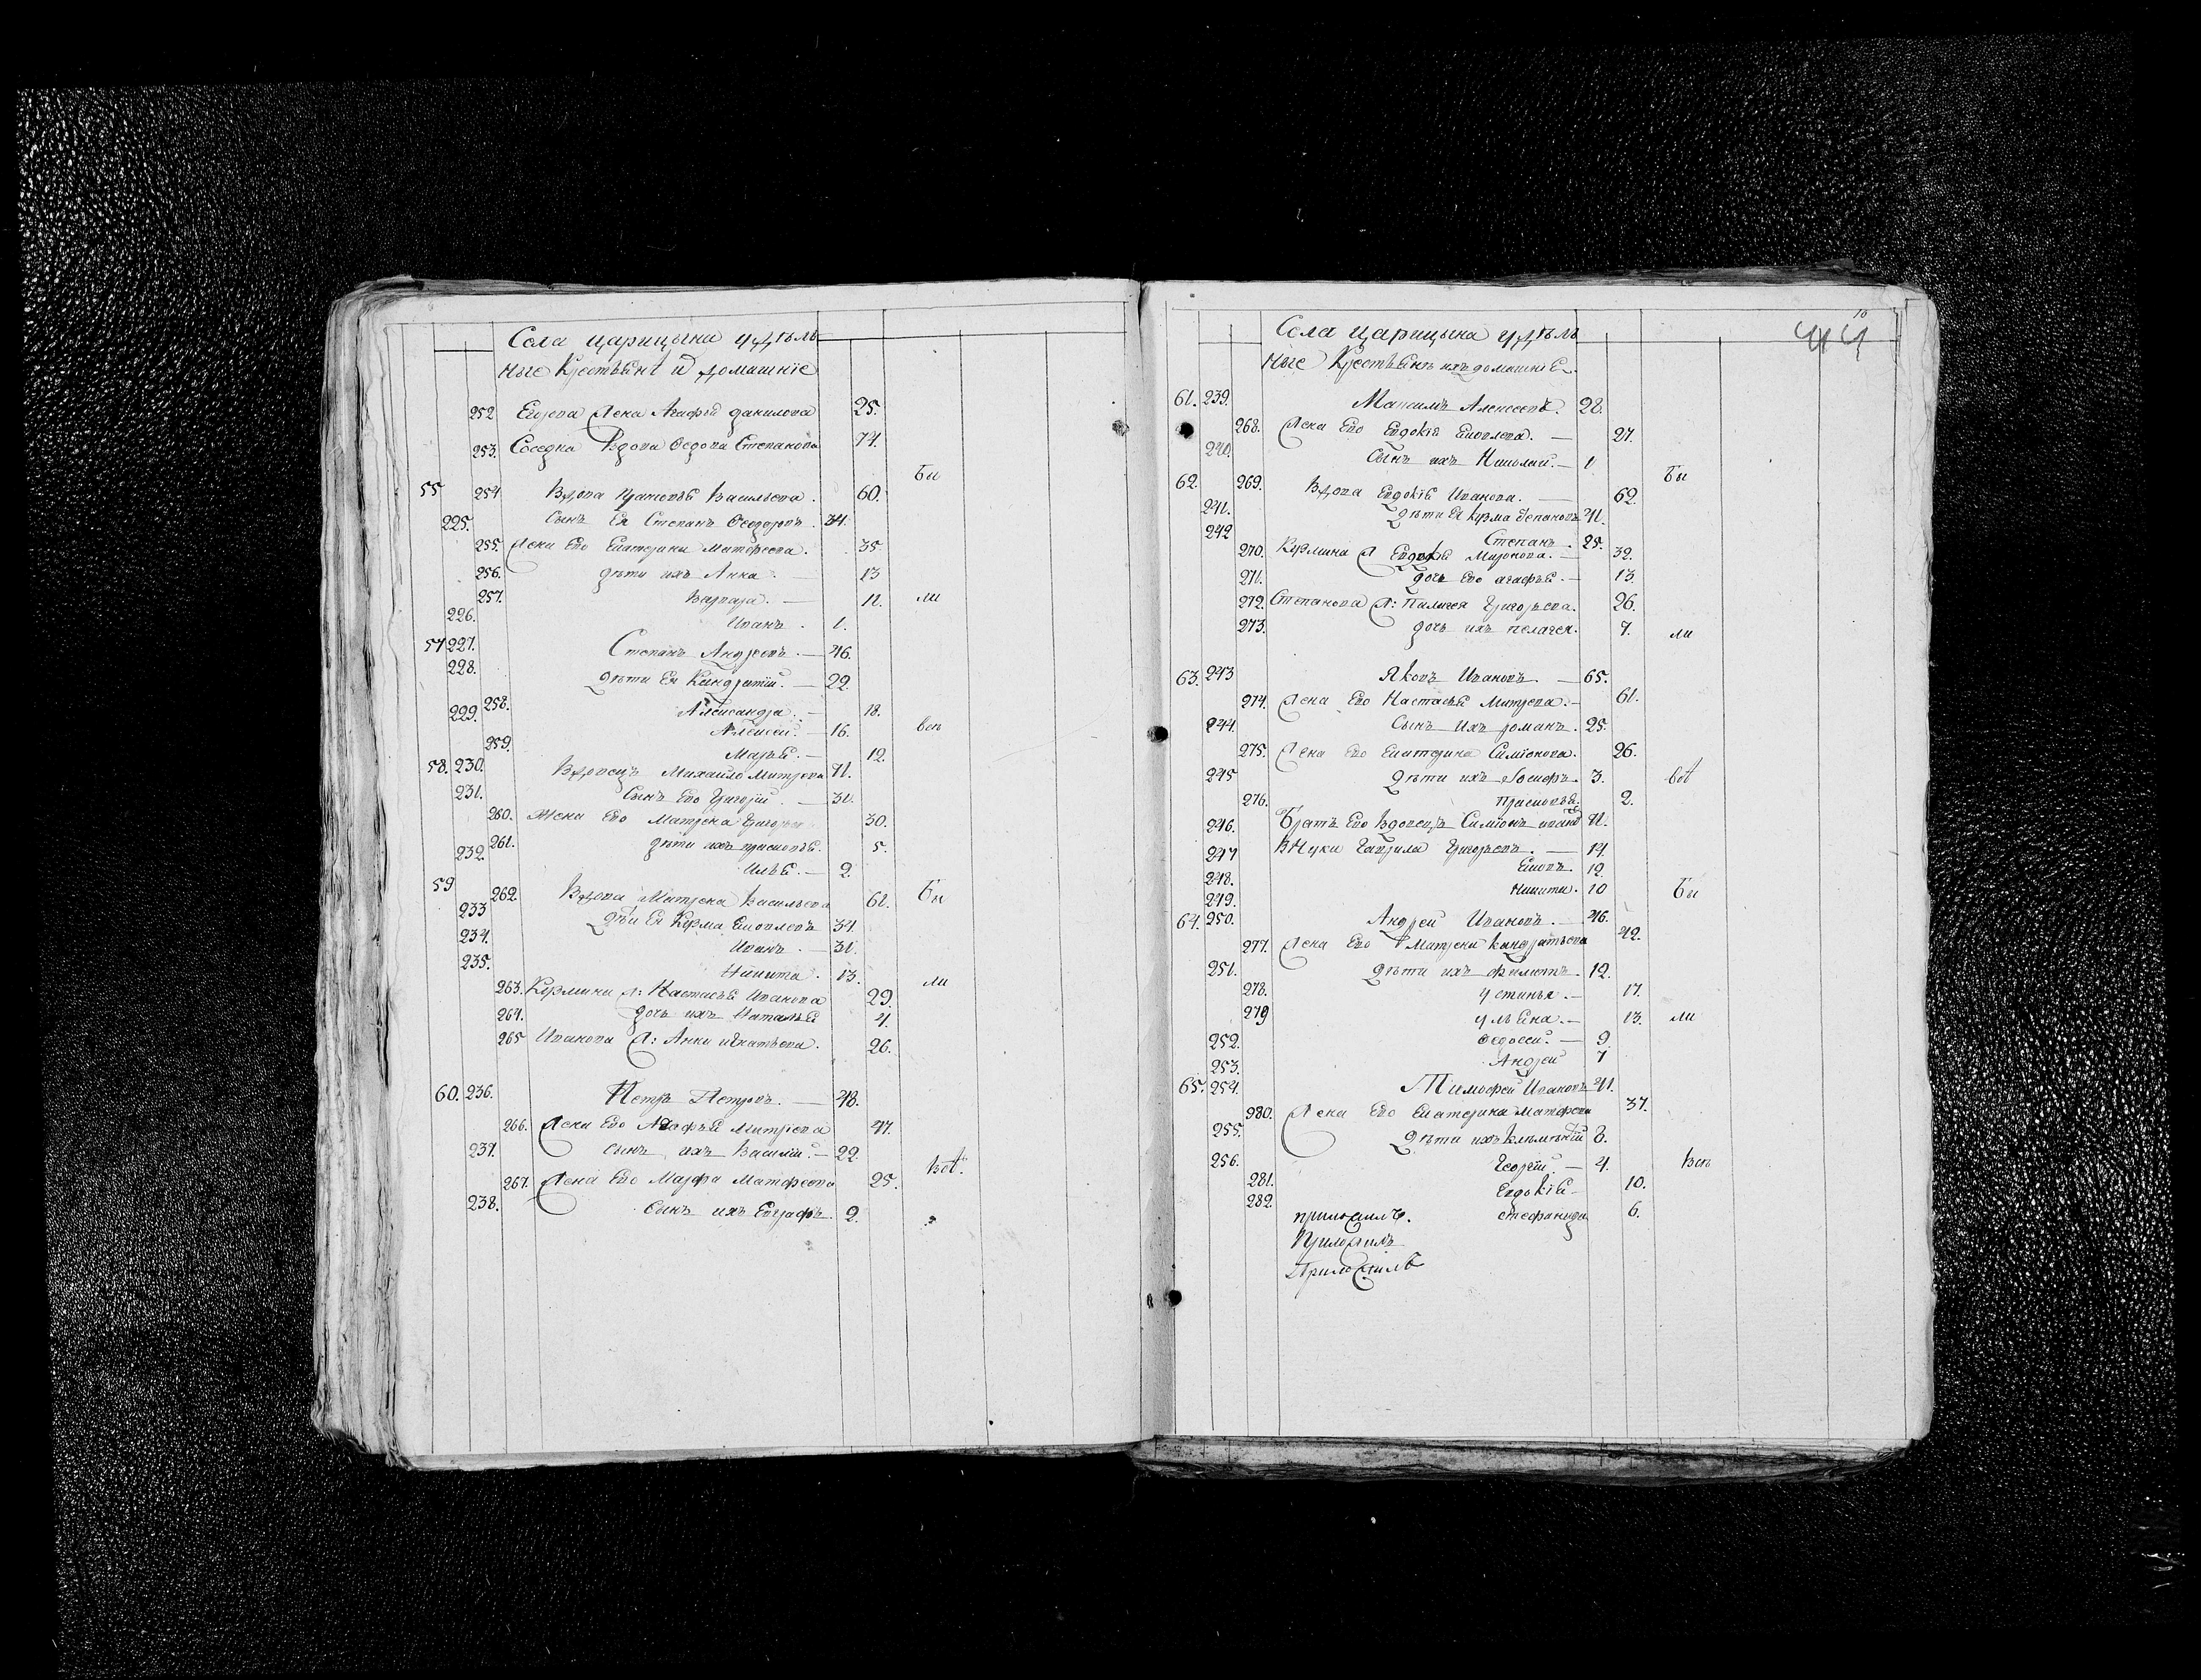 Села царицына удѣль
ные Крестьянѣ и домашніе
252 Егорова Жена Агафія данилова 25.
253. Соседка Вдова Федора Степанова 74.
Бы
55 254. Вдова Прасковья Васильева. 60.
225. Сынъ Ея Степанъ Феодоровъ. 34.
255. Жена Его Екатерина Матфеева. 35
256. дѣти ихъ Анна. — 13
257. Варвара. — 11. ли
226. Иванъ. 1.
57 227. Степанъ Андреевъ. — 46.
228. дѣти Ея Кандратій. — 22
258. Александра. — 18.
229. Алексей. — 16. всѣ
259. Марья. — 12.
58. 230. Вдовецъ Михайло Митрева 71.
231. Сынъ Его Григорій. — 31.
260. Жена Его Матрена Григорьев 30.
261. дѣти ихъ прасковья. 5.
232. Илья. — 2.
59 262. Вдова Матрена Васильева 61. Бы
233 дѣти Ея Козма Яковлевъ 34.
234. Иванъ. — 31.
235. Никита. 13. ли
263. Козмина ж: Настасья Иванова 29.
264. дочь ихъ Наталья 4.
265 Иванова Ж: Анна игнатьева. 26.
60. 236. Петръ Петровъ. — 48.
266. Жена Его Агафья Митрева 47.
237. сынъ ихъ Василій. — 22.
Всѣ.
267. Жена Его Марфа Матфеева 25.
238. Сынъ ихъ Евграфъ. 2.
10
44
Села царицына удѣль
ные Крестьянъ ихъ домашніе.
61. 239. Максимъ Алексеевъ. 28.
268. Жена Его Евдокія Яковлева. — 27.
240. Сынъ ихъ Николай. — 1
Бы
62. 269. Вдова Евдокія Иванова. — 62.
241. дѣти Ея Козма Степановъ 41.
242 Степанъ. 25.
270. Козмина Ж Евдокія Миронова. — 32.
271. дочь Его агафья. — 13.
272. Степанова Ж: Палагея Григорьева. 26.
273. дочь ихъ пелагея. 7. ли
63. 243 Яковъ Ивановъ. — 65.
274. Жена Его Настасья Митрева. — 61.
244. Сынъ Ихъ романъ. 25.
275. Жена Его Екатерина Симіонова. 26.
245 дѣти ихъ Иосифъ. 3. всѣ
276. прасковья. 2.
246. Братъ Его Вдовецъ Симіонъ иванов 71.
247 Внуки Гаврила Григорьевъ. — 14.
248. Яковъ. 12.
249. Никита. 10 Бы
64. 250. Андрей Ивановъ. — 46.
277. Жена Его Матрена Кандратьева 42.
251. дѣти ихъ филиппъ. 12.
278. устинья. — 17.
279 ульяна. — 13. ли
252. Федосей. — 9.
253. Андрей 7
65. 254. Тимофей Ивановъ 41.
280. Жена Его Екатерина Матфеева 37.
255. дѣти ихъ клѣмѣнтій 8.
256. Георгій. — 4. Всѣ
281. Евдокія — 10.
282. стефанида 6.
приложилъ.
Приложилъ
Приложилъ